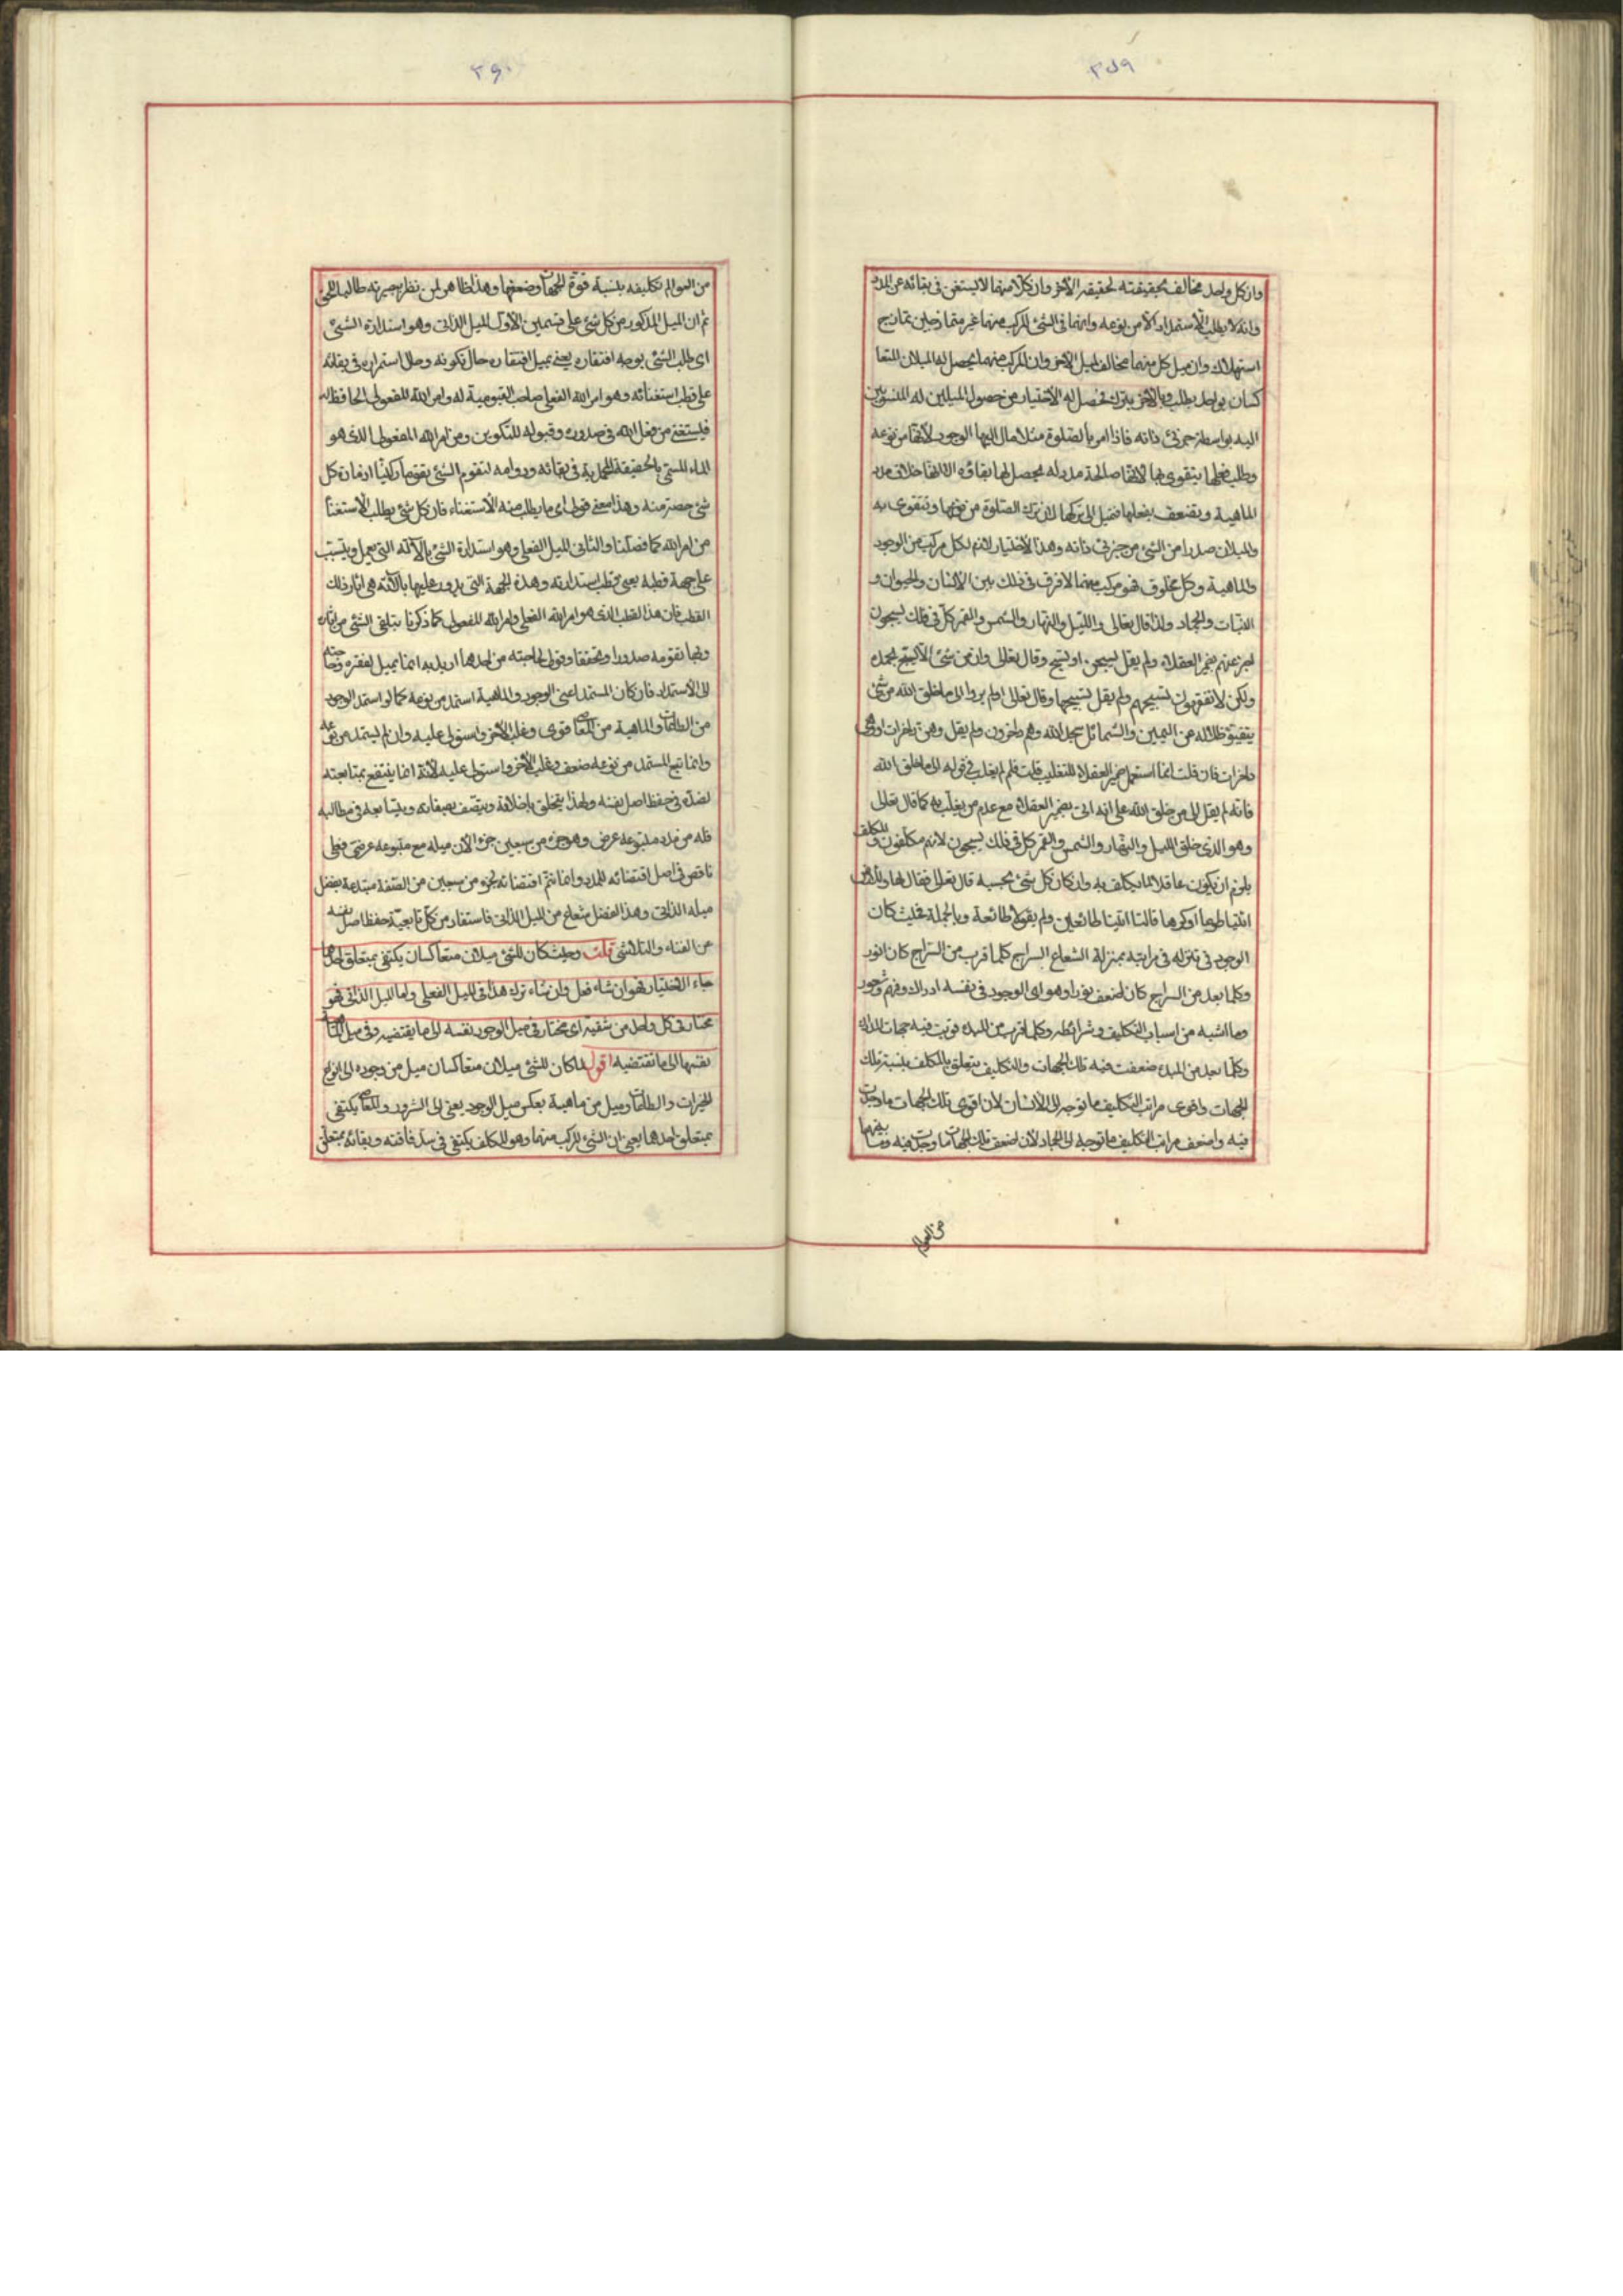 ٣٥٩
وان كل واحد مخالف بحقيقته لحقيقة الآخر وان كلا منهما لا يستغنى فى بقائه عن المدد
وانه لا يطلب الاستمداد الا من نوعه وانهما فى الشئ المركب منهما غير متمازجين تمازج
استهلاك وان ميل كل منهما مخالف لميل الآخر وان المركب منهما يحصل له الميلان المتعا
كسان بواحد يطلب وبالآخر يترك فحصل له الاختيار من حصول الميلين له المنسوبين
اليه بواسطة جزئى ذاته فاذا امر بالصلوة مثلا مال اليها الوجود لانها من نوعه
وطلب فعلها يتقوى بها لانها صالحة مدد له يحصل لها بقاؤه لانها خلاف مدد
الماهية وتضعف بفعلها فتميل الى تركها لان ترك الصلوة من نوعها وتتقوى به
والميلان صدرا من الشئ من جزئى ذاته وهذا الاختيار لازم لكل مركب من الوجود
والماهية وكل مخلوق فهو مركب منهما لا فرق فى ذلك بين الانسان والحيوان و
النبات والجماد ولذا قال تعالى والليل والنهار والشمس والقمر كل فى فلك يسبحون
اخبر عنهم بضمير العقلاء ولم يقل يسبحن او تسبح وقال تعالى وان من شئ الا يسبح بحمده
ولكن لا تفقهون تسبيحهم ولم يقل تسبيحها وقال تعالى اولم يروا الى ما خلق الله من شئ
يتفيؤ ظلاله عن اليمين والشمائل سجدا لله وهم داخرون ولم يقل وهن داخرات او وهى
داخرات فان قلت انما استعمل ضمير العقلاء للتغليب قلت فلم لم يغلب فى قوله الى ما خلق الله
فانه لم يقل الى من خلق الله على انه اتى بضمير العقلاء مع عدم من يغلب به كما قال تعالى
وهو الذى خلق الليل والنهار والشمس والقمر كل فى فلك يسبحون لانهم مكلفون والمكلف
يلزم ان يكون عاقلا لما يكلف به وان كان كل شئ بحسبه قال تعالى فقال لها وللارض
ائتيا طوعا او كرها قالتا اتينا طائعين ولم يقولا طائعة وبالجملة فحيث كان
الوجود فى تنزله فى مراتبه بمنزلة الشعاع السراج كلما قرب من السراج كان انور
وكلما بعد من السراج كان اضعف نورا وهو اى الوجود فى نفسه ادراك وفهم وشعور
وما اشبه من اسباب التكليف وشرائطه وكلما قرب من المبدء قويت فيه جهات المدارك
وكلما بعد من المبدء ضعفت فيه تلك الجهات والتكليف يتعلق بالمكلف بنسبة تلك
الجهات واقوى مراتب التكليف ما توجه الى الانسان لان اقوى تلك الجهات ما وجدت
فيه واضعف مراتب التكليف ما توجه الى الجماد لان اضعف تلك الجهات ما وجدت فيه وما بينهما
من العوالم
٣٦٠
من العوالم تكليفه بنسبة قوة الجهات وضعفها وهذا ظاهر لمن نظر ببصيرته طالبا للحق
ثم ان الميل المذكور من كل شئ على قسمين الاول الميل الذاتى وهو استدارة الشئ
اى طلب الشئ بوجه افتقاره يعنى بميل افتقاره حال تكونه وحال استمراره فى بقائه
على قطب استغنائه وهو امر الله الفعلى صاحب القيومية له وامر الله المفعولى الحافظ له
فيستغنى من فعل الله فى صدوره وقبوله للتكوين ومن امر الله المفعولى الذى هو
الماء المسمى بالحقيقة المحمدية فى بقائه ودوامه لتقوم الشئ به تقوما ركنيا اذ مادة كل
شئ حصة منه وهذا معنى قولى اى ما يطلب منه الاستغناء فان كل شئ يطلب الاستغناء
من امر الله كما فصلنا والثانى الميل الفعلى وهو استدارة الشئ بالآلة التى يعمل ويتسبب
على جهة قطبه يعنى قطب استدارته وهذه الجهة التى يدور عليها بآلته هى آثار ذلك
القطب فان هذا القطب الذى هو امر الله الفعلى وامر الله المفعولى كما ذكرنا يتلقى الشئ من آثاره
وبها تقومه صدورا وتحققا وقولى لحاجته من احدهما اريد به انما يميل لفقره وحاجته
الى الاستمداد فان كان المستمد اعنى الوجود والماهية استمد من نوعه كما لو استمد الوجود
من الطاعات والماهية من المعاصى قوى وغلب الآخر واستولى عليه وان لم يستمد من نوعه
وانما تبع المستمد من نوعه ضعف وغلب الآخر واستولى عليه لانه انما ينتفع بمتابعته
لضده فى حفظ اصل نفسه ولهذا يتخلق باخلاقه ويتصف بصفاته ويتابعه فى مطالبه
فله من مدد متبوعه عرضى وهو جزء من سبعين جزء لان ميله مع متبوعه عرضى فعلى
ناقص فى اصل اقتضائه للمدد وانما تتم اقتضائه بجزء من سبعين من الصفة مبتدعة بفضل
ميله الذاتى وهذا الفضل شعاع من الميل الذاتى فاستفاد من كل تابعية حفظ اصل نفسه
من الفناء والتلاشى قلت وحيث كان للشئ ميلان متعاكسان يكتفى بمتعلق احدهما
جاء الاختيار فهو ان شاء فعل وان شاء ترك هذا فى الميل الفعلى واما الميل الذاتى فهو
مختار فى كل واحد من شقيه اى مختار فى ميل الوجود نفسه الى ما يقتضيه وفى ميل الماهية
نفسها الى ما تقتضيه اقول لما كان للشئ ميلان متعاكسان ميل من وجوده الى انواع
الخيرات والطاعات وميل من ماهية بعكس ميل الوجود يعنى الى الشرور والمعاصى يكتفى
بمتعلق احدهما يعنى ان الشئ المركب منهما وهو المكلف يكتفى فى سد فاقته وبقائه بمتعلق